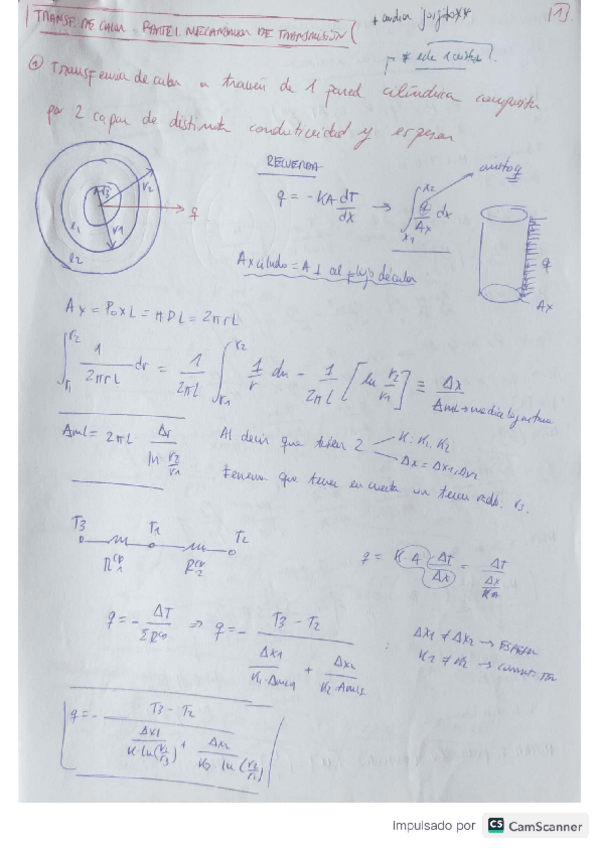 TRANSF. DE CALOR. PARTE I. MECANISMOS DE TRANSMISIÓN
1
① Transferencia de calor a través de 1 pared cilíndrica compuesta
por 2 capas de distinta conductividad y espesor
RECUERDA
q = -KA dT/dx → ∫_{x1}^{x2} q/Ax dx
A ⊥ al flujo de calor
r2
r1
q
Ax
Ax = P_0 x L = πDL = 2πrL
∫_{r1}^{r2} 1/(2πrL) dr = 1/(2πL) ∫_{r1}^{r2} 1/r dr = 1/(2πL) [ln r2/r1] ≡ Δx/
Aml → media logaritmica
Aml = 2πL Δr / ln r2/r1
Al decir que tienen 2
K: K1, K2
Δx = Δx1, Δx2
tenemos que tener en cuenta un tercer radio: r3.
T3 T1 T2
q = K A ΔT/Δx = ΔT / (Δx/KA)
q = - ΔT/ΣR ⇒ q = - (T3 - T2) / (Δx1/(K1·Aml1) + Δx2/(K2·Aml2))
Δx1 ≠ Δx2 → ESPESOR
K1 ≠ K2 →
q = - (T3 - T2) / (Δx1/(K·ln(r1/r3)) + Δx2/(K2·ln(r2/r1)))
Impulsado por CS CamScanner